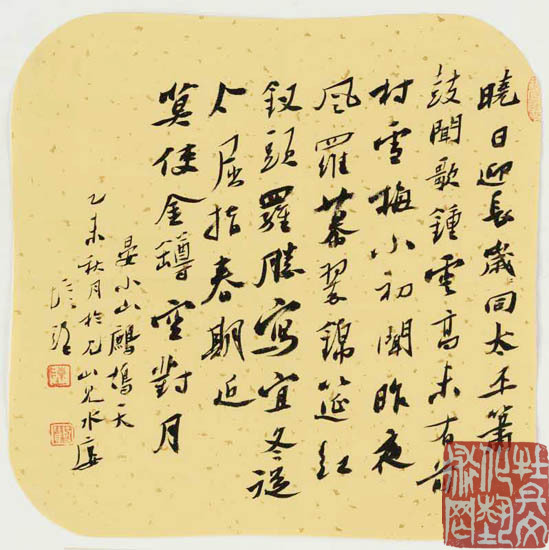 曉日迎長歲同太平簫
鼓間歌鍾雲高未有前
村雪梅小初開昨夜
風羅幕翠錦筵紅
釵頭羅勝寫宜冬從
今屈指春期近
莫使金罇空對月
晏小山鷓鴣天
乙未秋月於山水